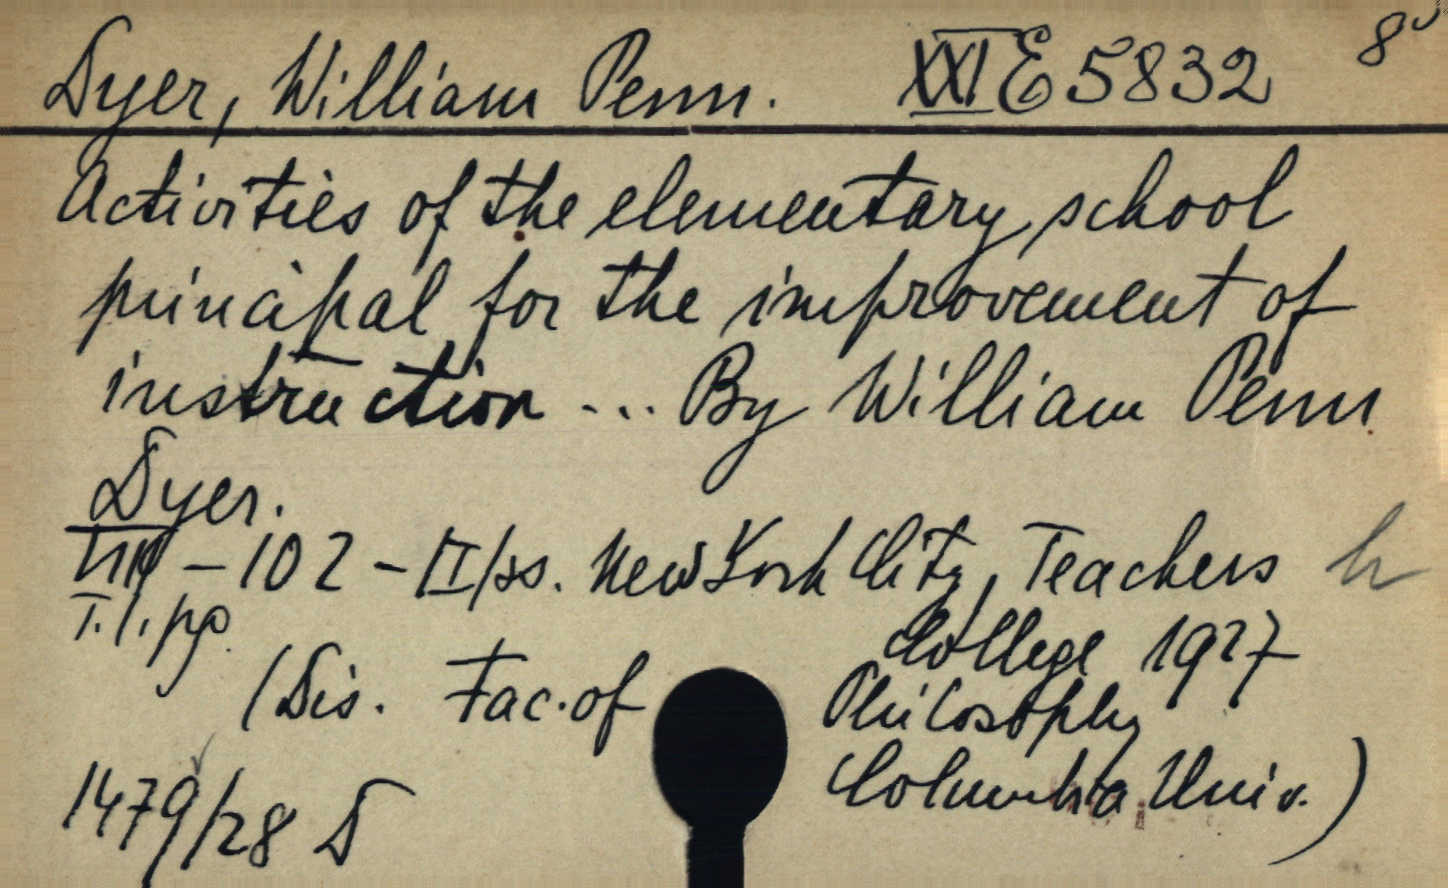 Dyer, William Penn. XXI E 5832 8°
Activities of the elementary school
principal for the improvement of
instruction ... By William Penn
Dyer.
– 102 – New York City, Teachers
T. l. pp. College 1927
(Dis. Fac. of Philosophy
Columbia Univ.)
1479/28 D